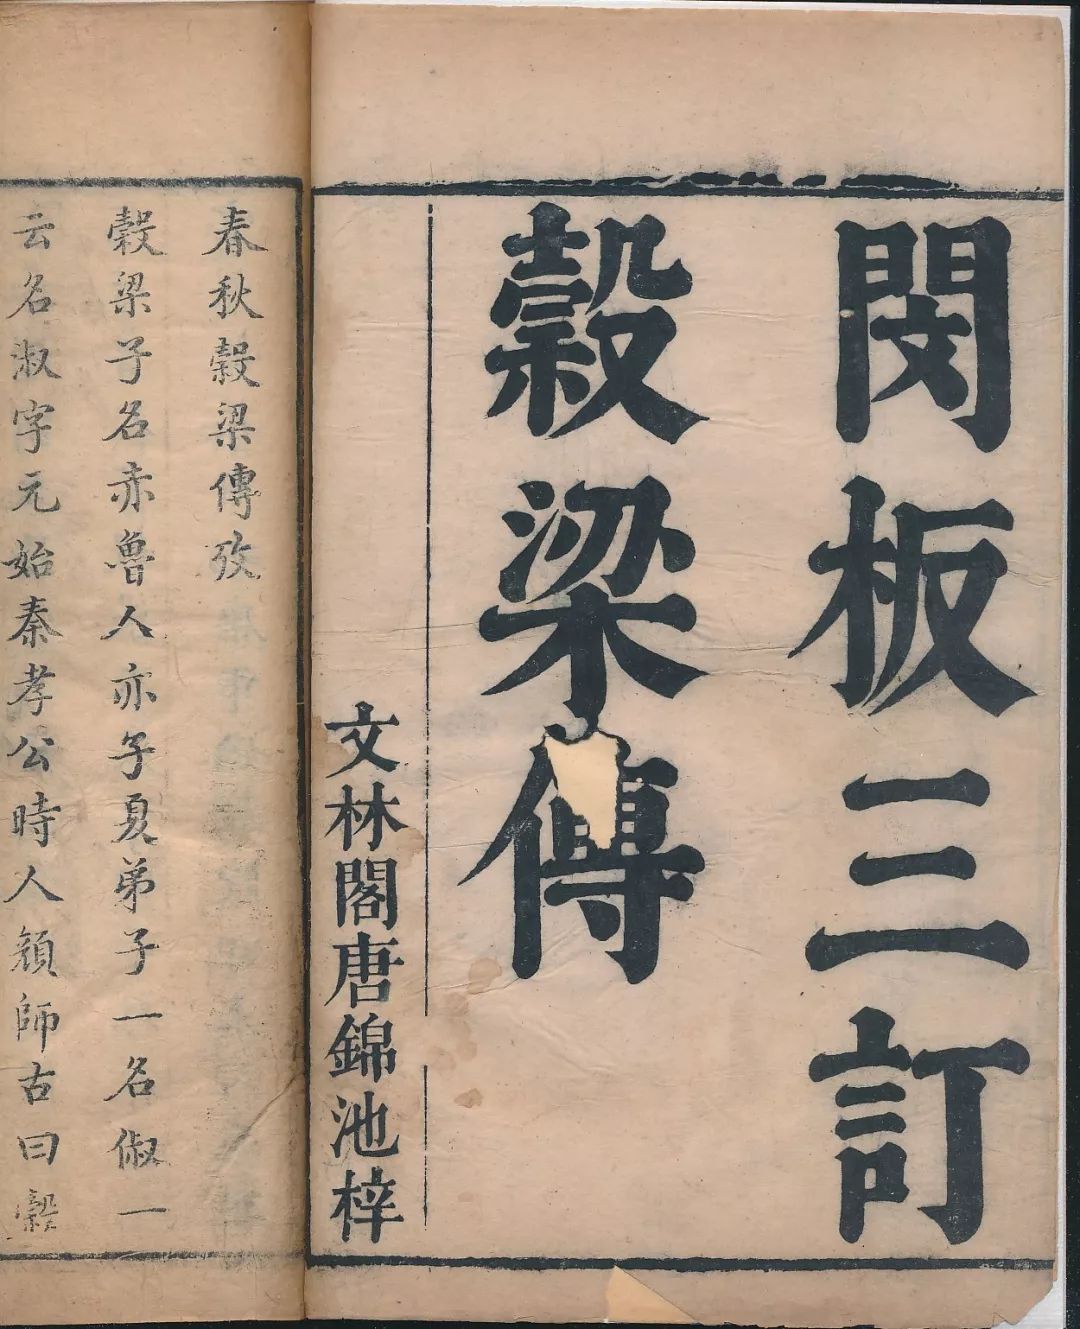 閔板三訂
穀梁傳
文林閣唐錦池梓
春秋穀梁傳攷
穀梁子名赤魯人亦子夏弟子一名俶一
云名淑字元始秦孝公時人顏師古曰穀